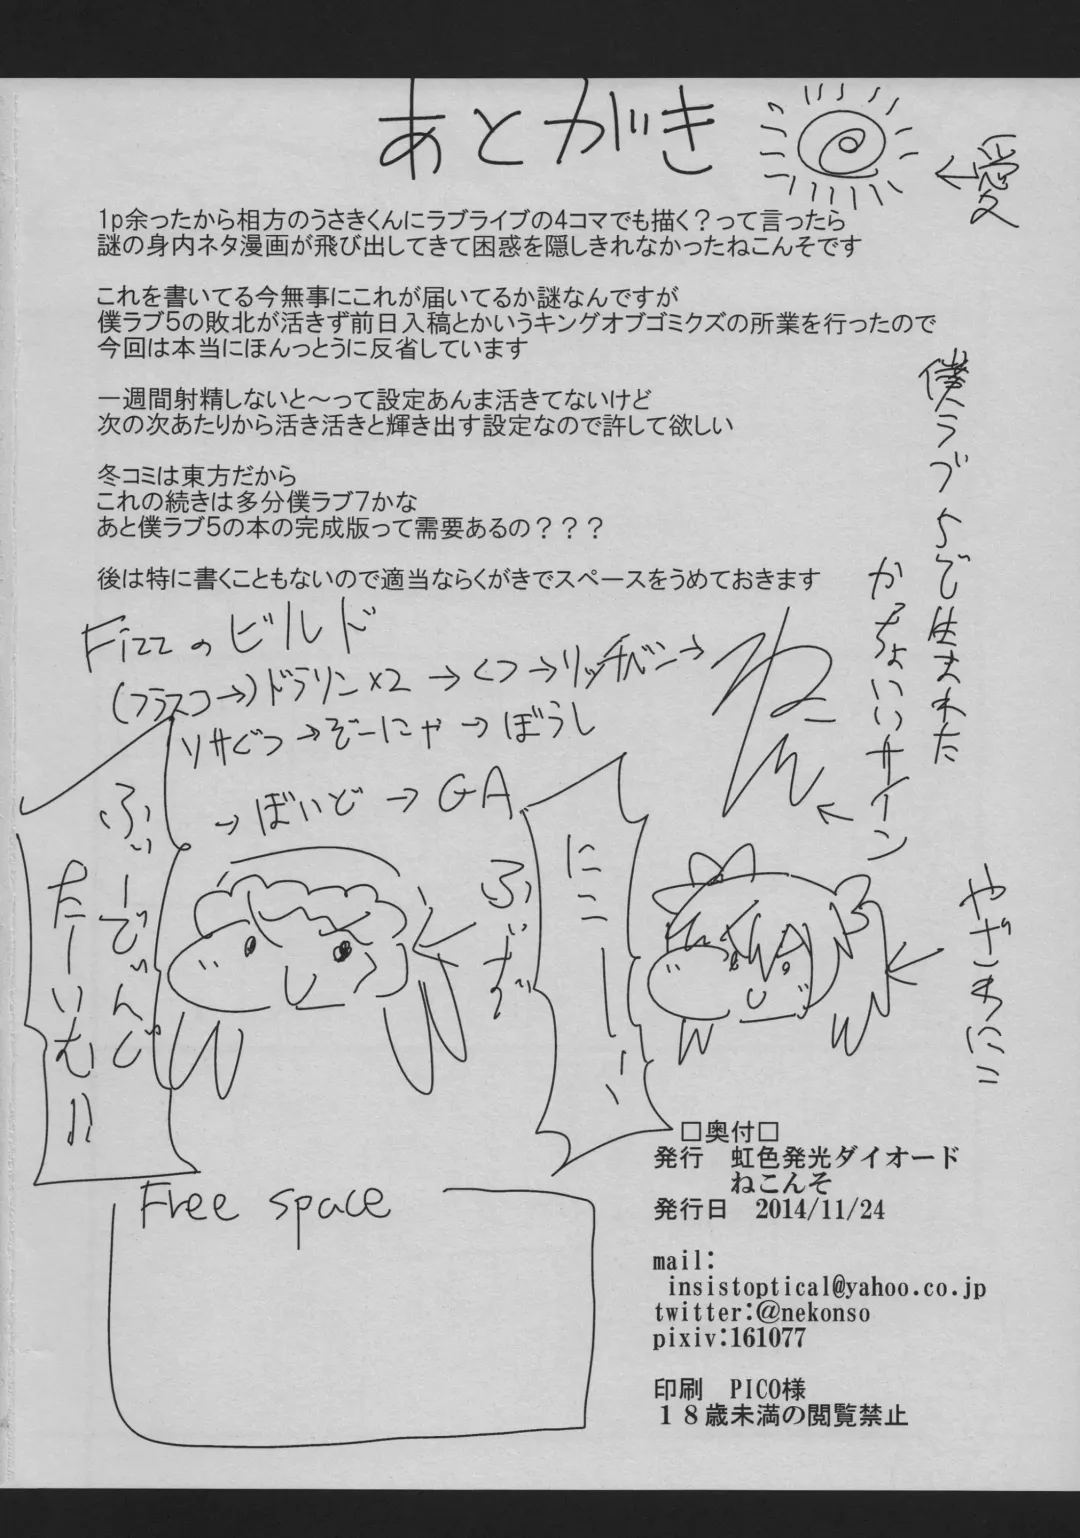 あとがき
←愛
1p余ったから相方のうさきくんにラブライブの4コマでも描く?って言ったら
謎の身内ネタ漫画が飛び出してきて困惑を隠しきれなかったねこんそです
これを書いてる今無事にこれが届いてるか謎なんですが
僕ラブ5の敗北が活きず前日入稿とかいうキングオブゴミクズの所業を行ったので
今回は本当にほんっとうに反省しています
一週間射精しないと～って設定あんま活きてないけど
次の次あたりから活き活きと輝き出す設定なので許して欲しい
冬コミは東方だから
これの続きは多分僕ラブ7かな
あと僕ラブ5の本の完成版って需要あるの???
後は特に書くこともないので適当ならくがきでスペースをうめておきます
僕ラブ5で生まれた
かっちょいいサイン
Fizzのビルド
(フラスコ→)ドラリン×2→くつ→リッチベン→
ソサぐつ→ぞーにゃ→ぼうし
→ぼいど→GA
ふぃーでぃんど
たーいむ!!
ふぃず
にこーーい
やざわにこ
Free space
□奥付□
発行 虹色発光ダイオード
ねこんそ
発行日 2014/11/24
mail:
insistoptical@yahoo.co.jp
twitter:@nekonso
pixiv:161077
印刷 PICO様
１８歳未満の閲覧禁止